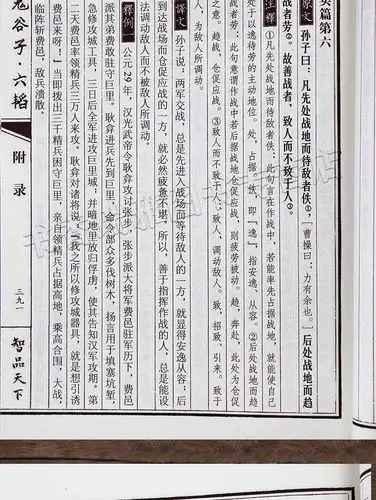 实篇第六
原文 孙子曰：凡先处战地而待敌者佚①，［曹操曰：力有余也。］后处战地而趋
战者劳②。故善战者，致人而不致于人③。
注释 ①凡先处战地而待敌者佚：此句言在作战中，若能率先占据战地，就能使自己
处于以逸待劳的主动地位。处，占据。佚，即“逸”，指安逸、从容。②后处战地而趋
战者劳：此句意谓作战中若后据战地仓促应战，则疲劳被动。趋，奔赴，此处为仓促
之意。趋战，仓促应战。③致人而不致于人：致，招致、引来。致于
人，为敌人所调动。
译文 孙子说：两军交战，总是先进入战场而等待敌人的一方，就显得安逸从容；后
到达战场而仓促应战的一方，就必然疲惫不堪。所以，善于指挥作战的人，总是能设
法调动敌人而不被敌人所调动。
释例 公元29年，汉光武帝令耿弇攻讨张步，张步派大将军费邑驻军历下，费邑
派其弟费敢驻守巨里。耿弇进兵先到巨里，命令部众多伐树木，扬言用于填塞坑堑，
急修攻城工具，三日后全军进攻巨里城，并暗地里放归俘虏，使其告知汉军攻期。第
二天费邑率领精兵三万人来攻。耿弇对诸将说：“我之所以修攻城器具，就是想引诱
费邑来呀！”当即拨出三千精兵困守巨里，亲自领精兵占据高地，乘高合围，大战，
临阵斩费邑，敌兵溃散。
鬼谷子·六韬
附录
三九一
智品天下